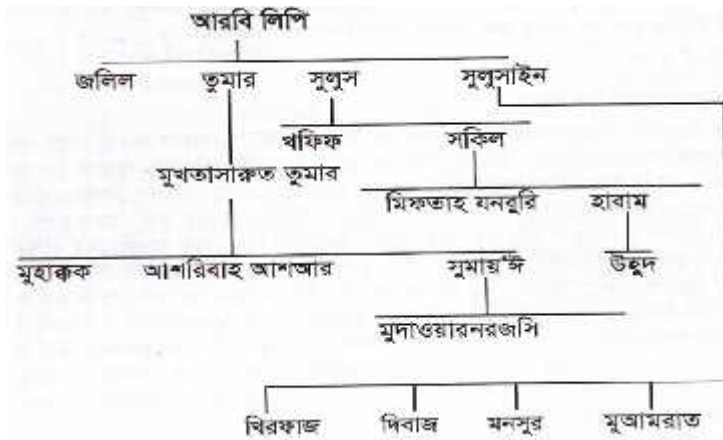 আরবি লিপি
জলিল তুমার সুলুস সুলুসাইন
খফিফ সকিল
মুখতাসারুত তুমার
মিফতাহ যনবুরি হাবাম
মুহাক্কক আশরিবাহ আশআর সুমায়'ঈ উহুদ
মুদাওয়ারনরজসি
খিরফাজ দিবাজ মনসুর মুআমরাত